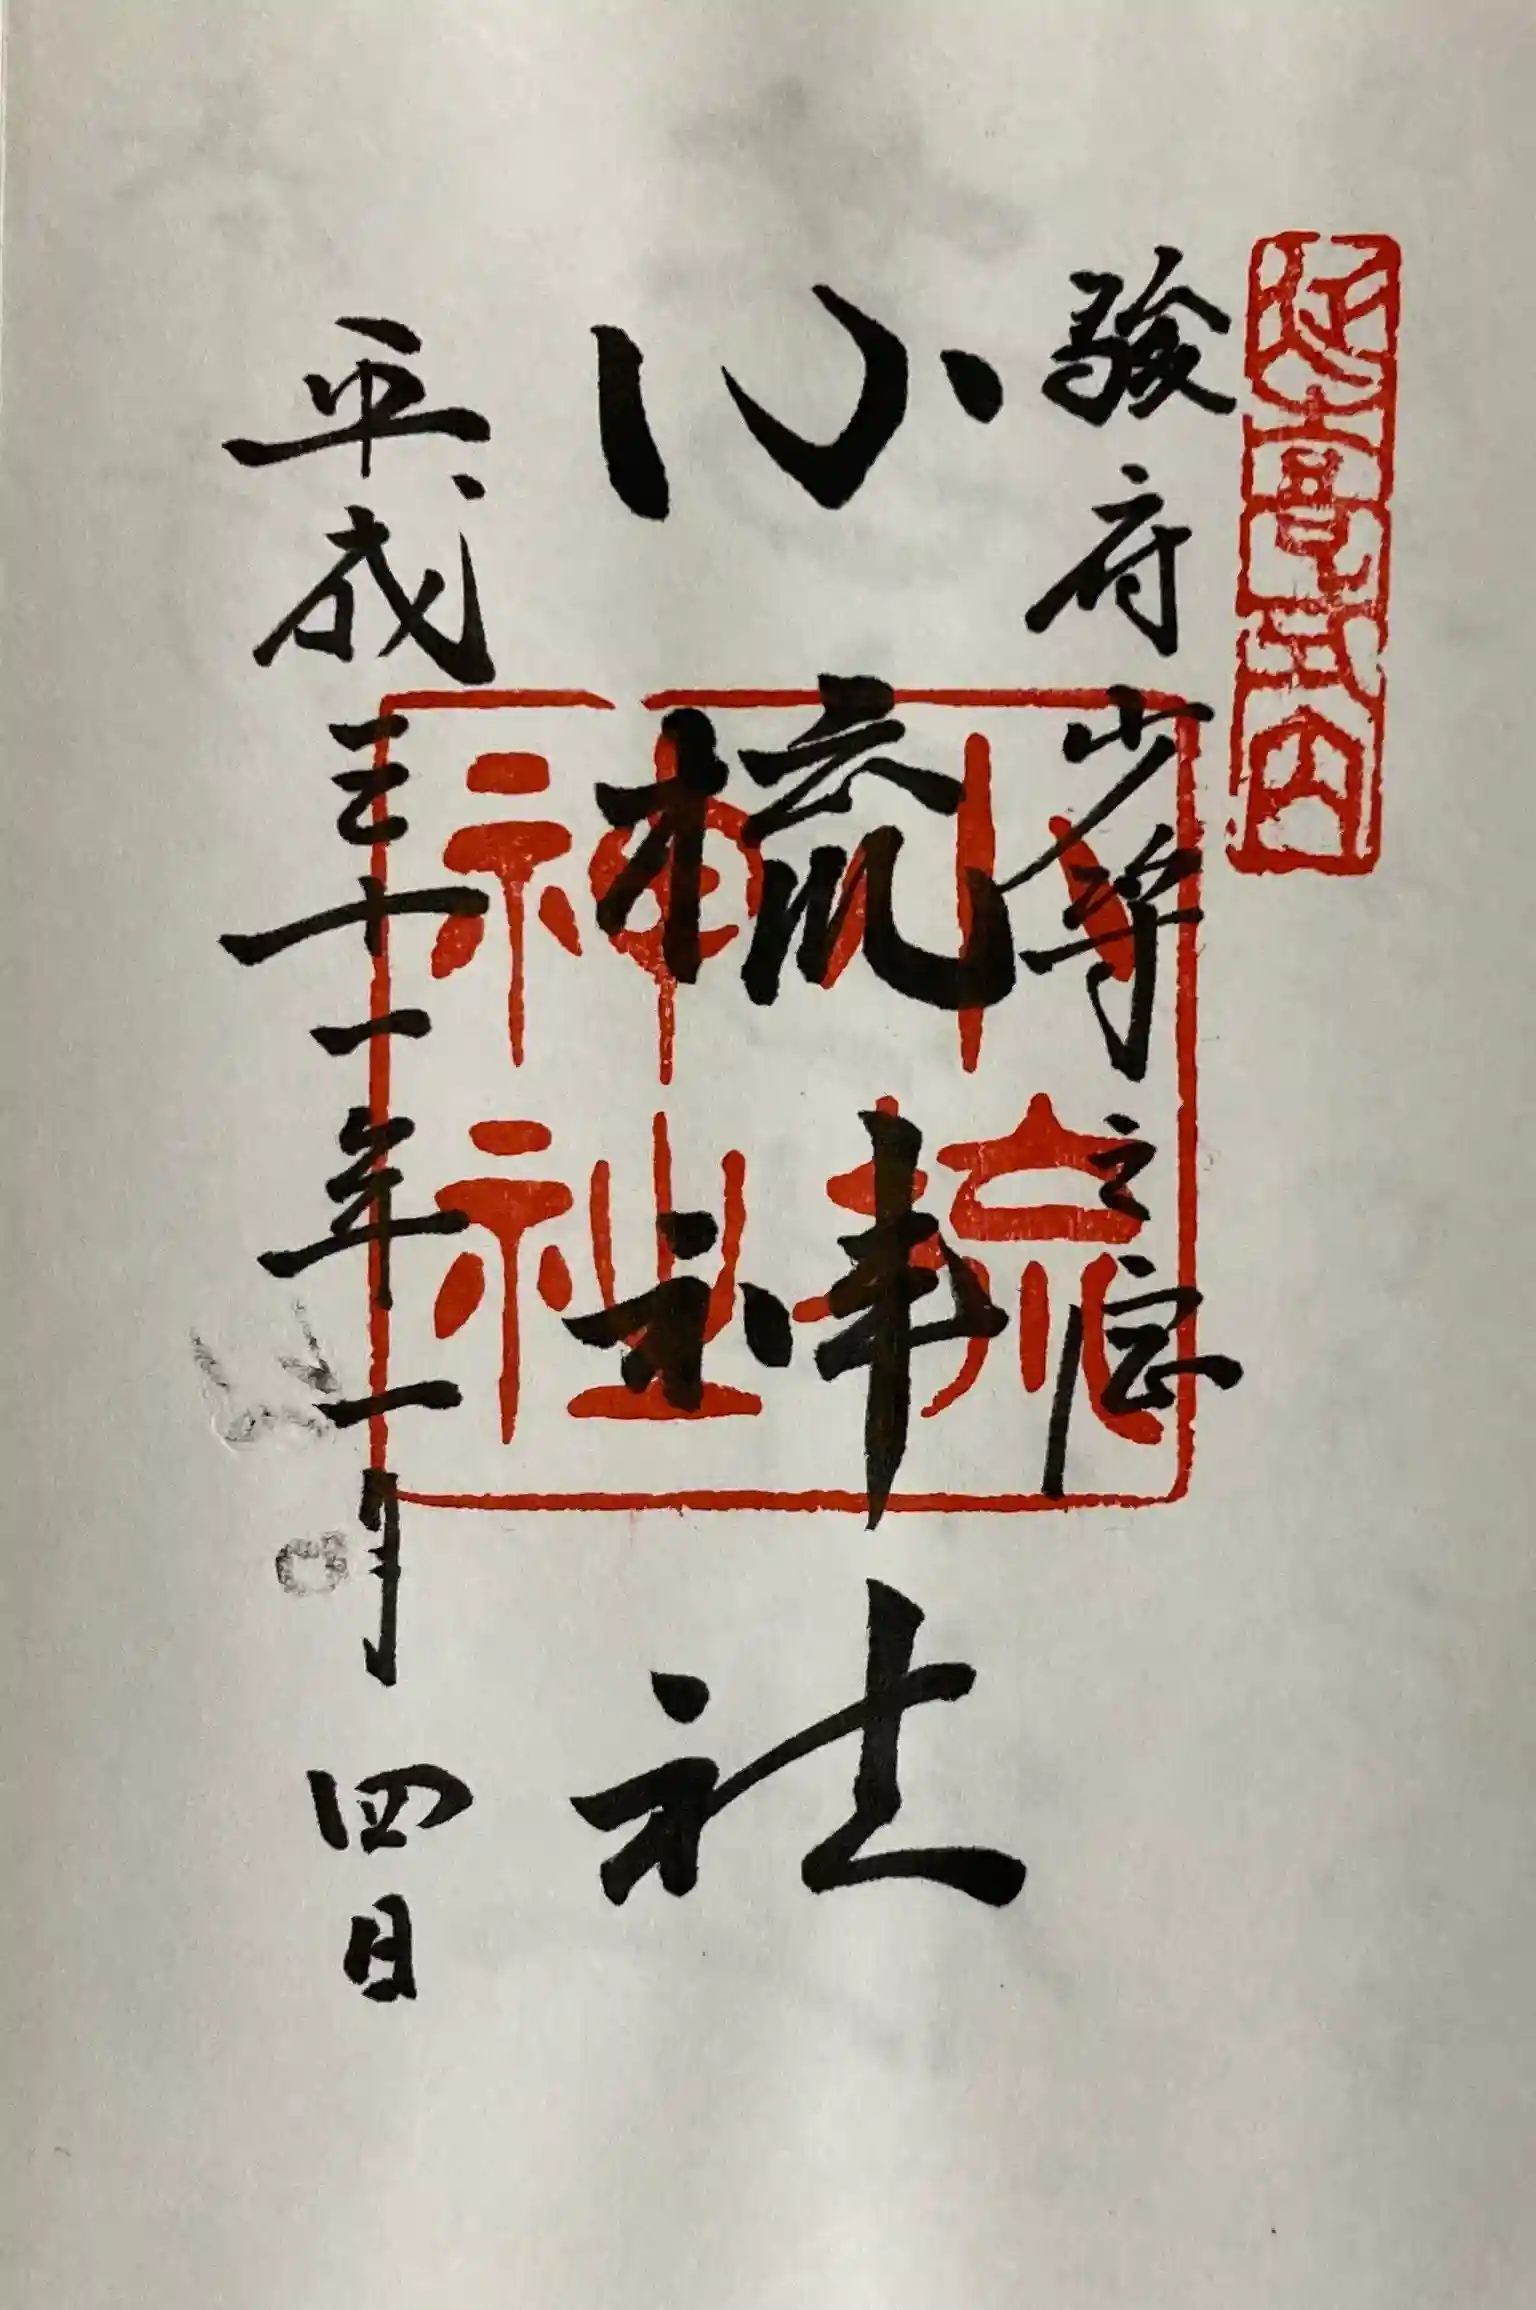 延喜式内
駿府少将之宮
小梳神社
小梳神社
平成三十一年一月四日